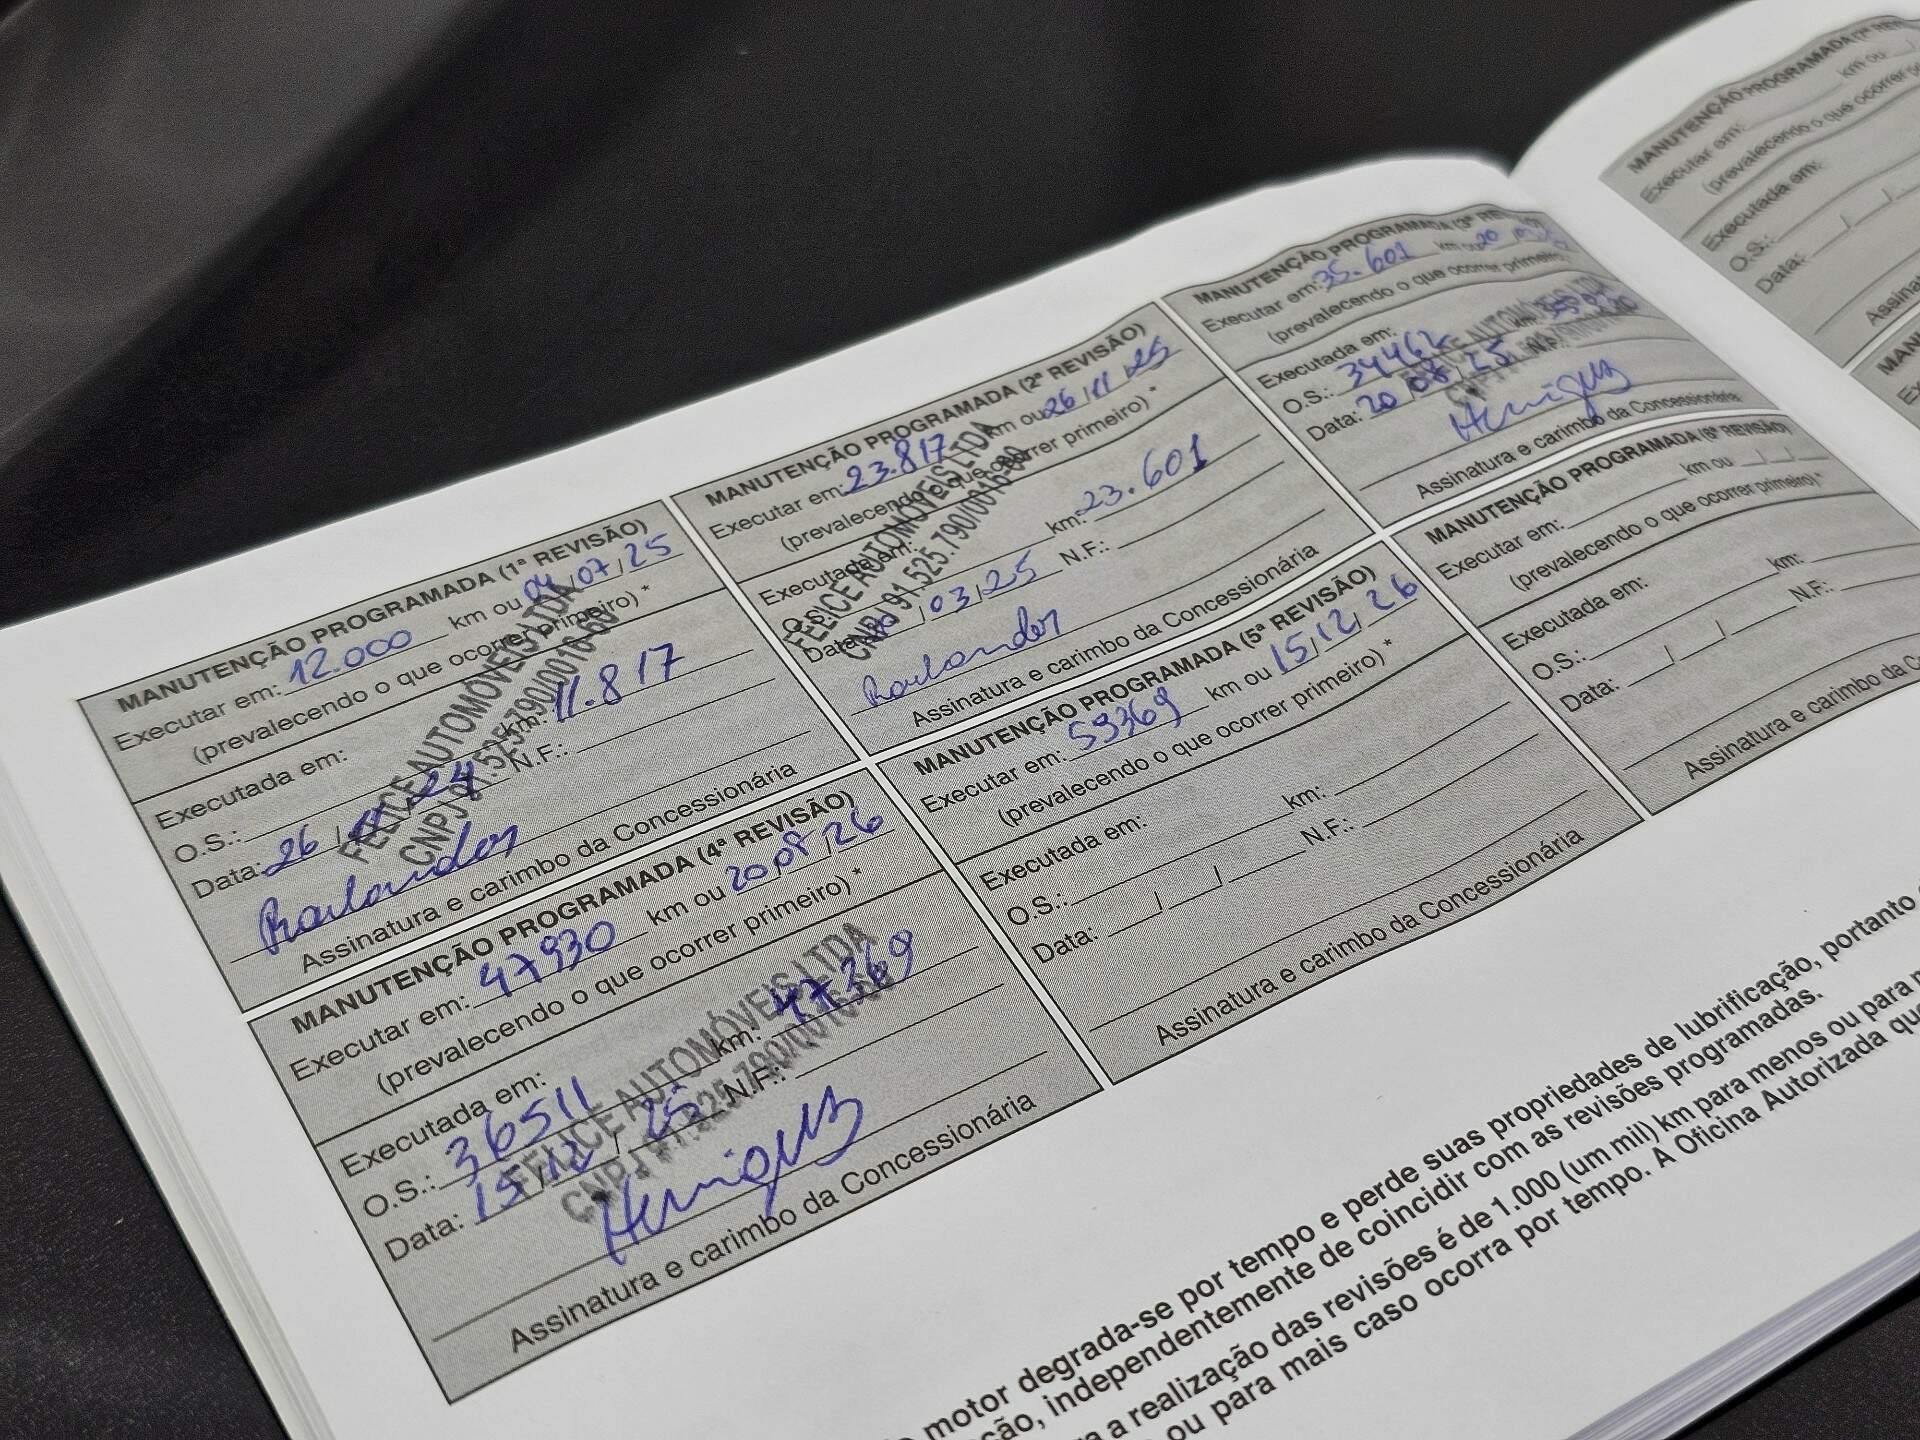 MANUTENÇÃO PROGRAMADA (1ª REVISÃO)
Executar em: 12.000 km ou 04/07/25
(prevalecendo o que ocorrer primeiro) *
Executada em:
O.S.: km: 11.817
Data: 26/11/24 N.F.:
FELICE AUTOMÓVEIS LTDA
CNPJ 91.525.790/0016-60
Assinatura e carimbo da Concessionária
MANUTENÇÃO PROGRAMADA (2ª REVISÃO)
Executar em: 23.817 km ou 26/11/25
(prevalecendo o que ocorrer primeiro) *
Executada em:
O.S.: km: 23.601
Data: /03/25 N.F.:
FELICE AUTOMÓVEIS LTDA
CNPJ 91.525.790/0016-60
Assinatura e carimbo da Concessionária
MANUTENÇÃO PROGRAMADA (3ª
Executar em: 35.601 km ou 20
(prevalecendo o que ocorrer primeiro)
Executada em:
O.S.: 34462
Data: 20/08/25
Henrique
Assinatura e carimbo da Concessionária
MANUTENÇÃO PROGRAMADA (4ª REVISÃO)
Executar em: 47930 km ou 20/08/26
(prevalecendo o que ocorrer primeiro) *
Executada em:
O.S.: 36511 km: 47369
Data: 15/12/25 N.F.:
FELICE AUTOMÓVEIS LTDA
CNPJ 91.525.790/0016-60
Henrique
Assinatura e carimbo da Concessionária
MANUTENÇÃO PROGRAMADA (5ª REVISÃO)
Executar em: 59369 km ou 15/12/26
(prevalecendo o que ocorrer primeiro) *
Executada em:
O.S.: km:
Data: / / N.F.:
Assinatura e carimbo da Concessionária
MANUTENÇÃO PROGRAMADA (6ª REVISÃO)
Executar em: km ou / /
(prevalecendo o que ocorrer primeiro) *
Executada em:
O.S.: km:
Data: / / N.F.:
Assinatura e carimbo da
motor degrada-se por tempo e perde suas propriedades de lubrificação, portanto
independentemente de coincidir com as revisões programadas.
a realização das revisões é de 1.000 (um mil) km para menos ou para
ou para mais caso ocorra por tempo. A Oficina Autorizada
MANUTENÇÃO PROGRAMADA (7ª
Executar em: km ou
(prevalecendo o que ocorrer
Executada em:
O.S.:
Data: / /